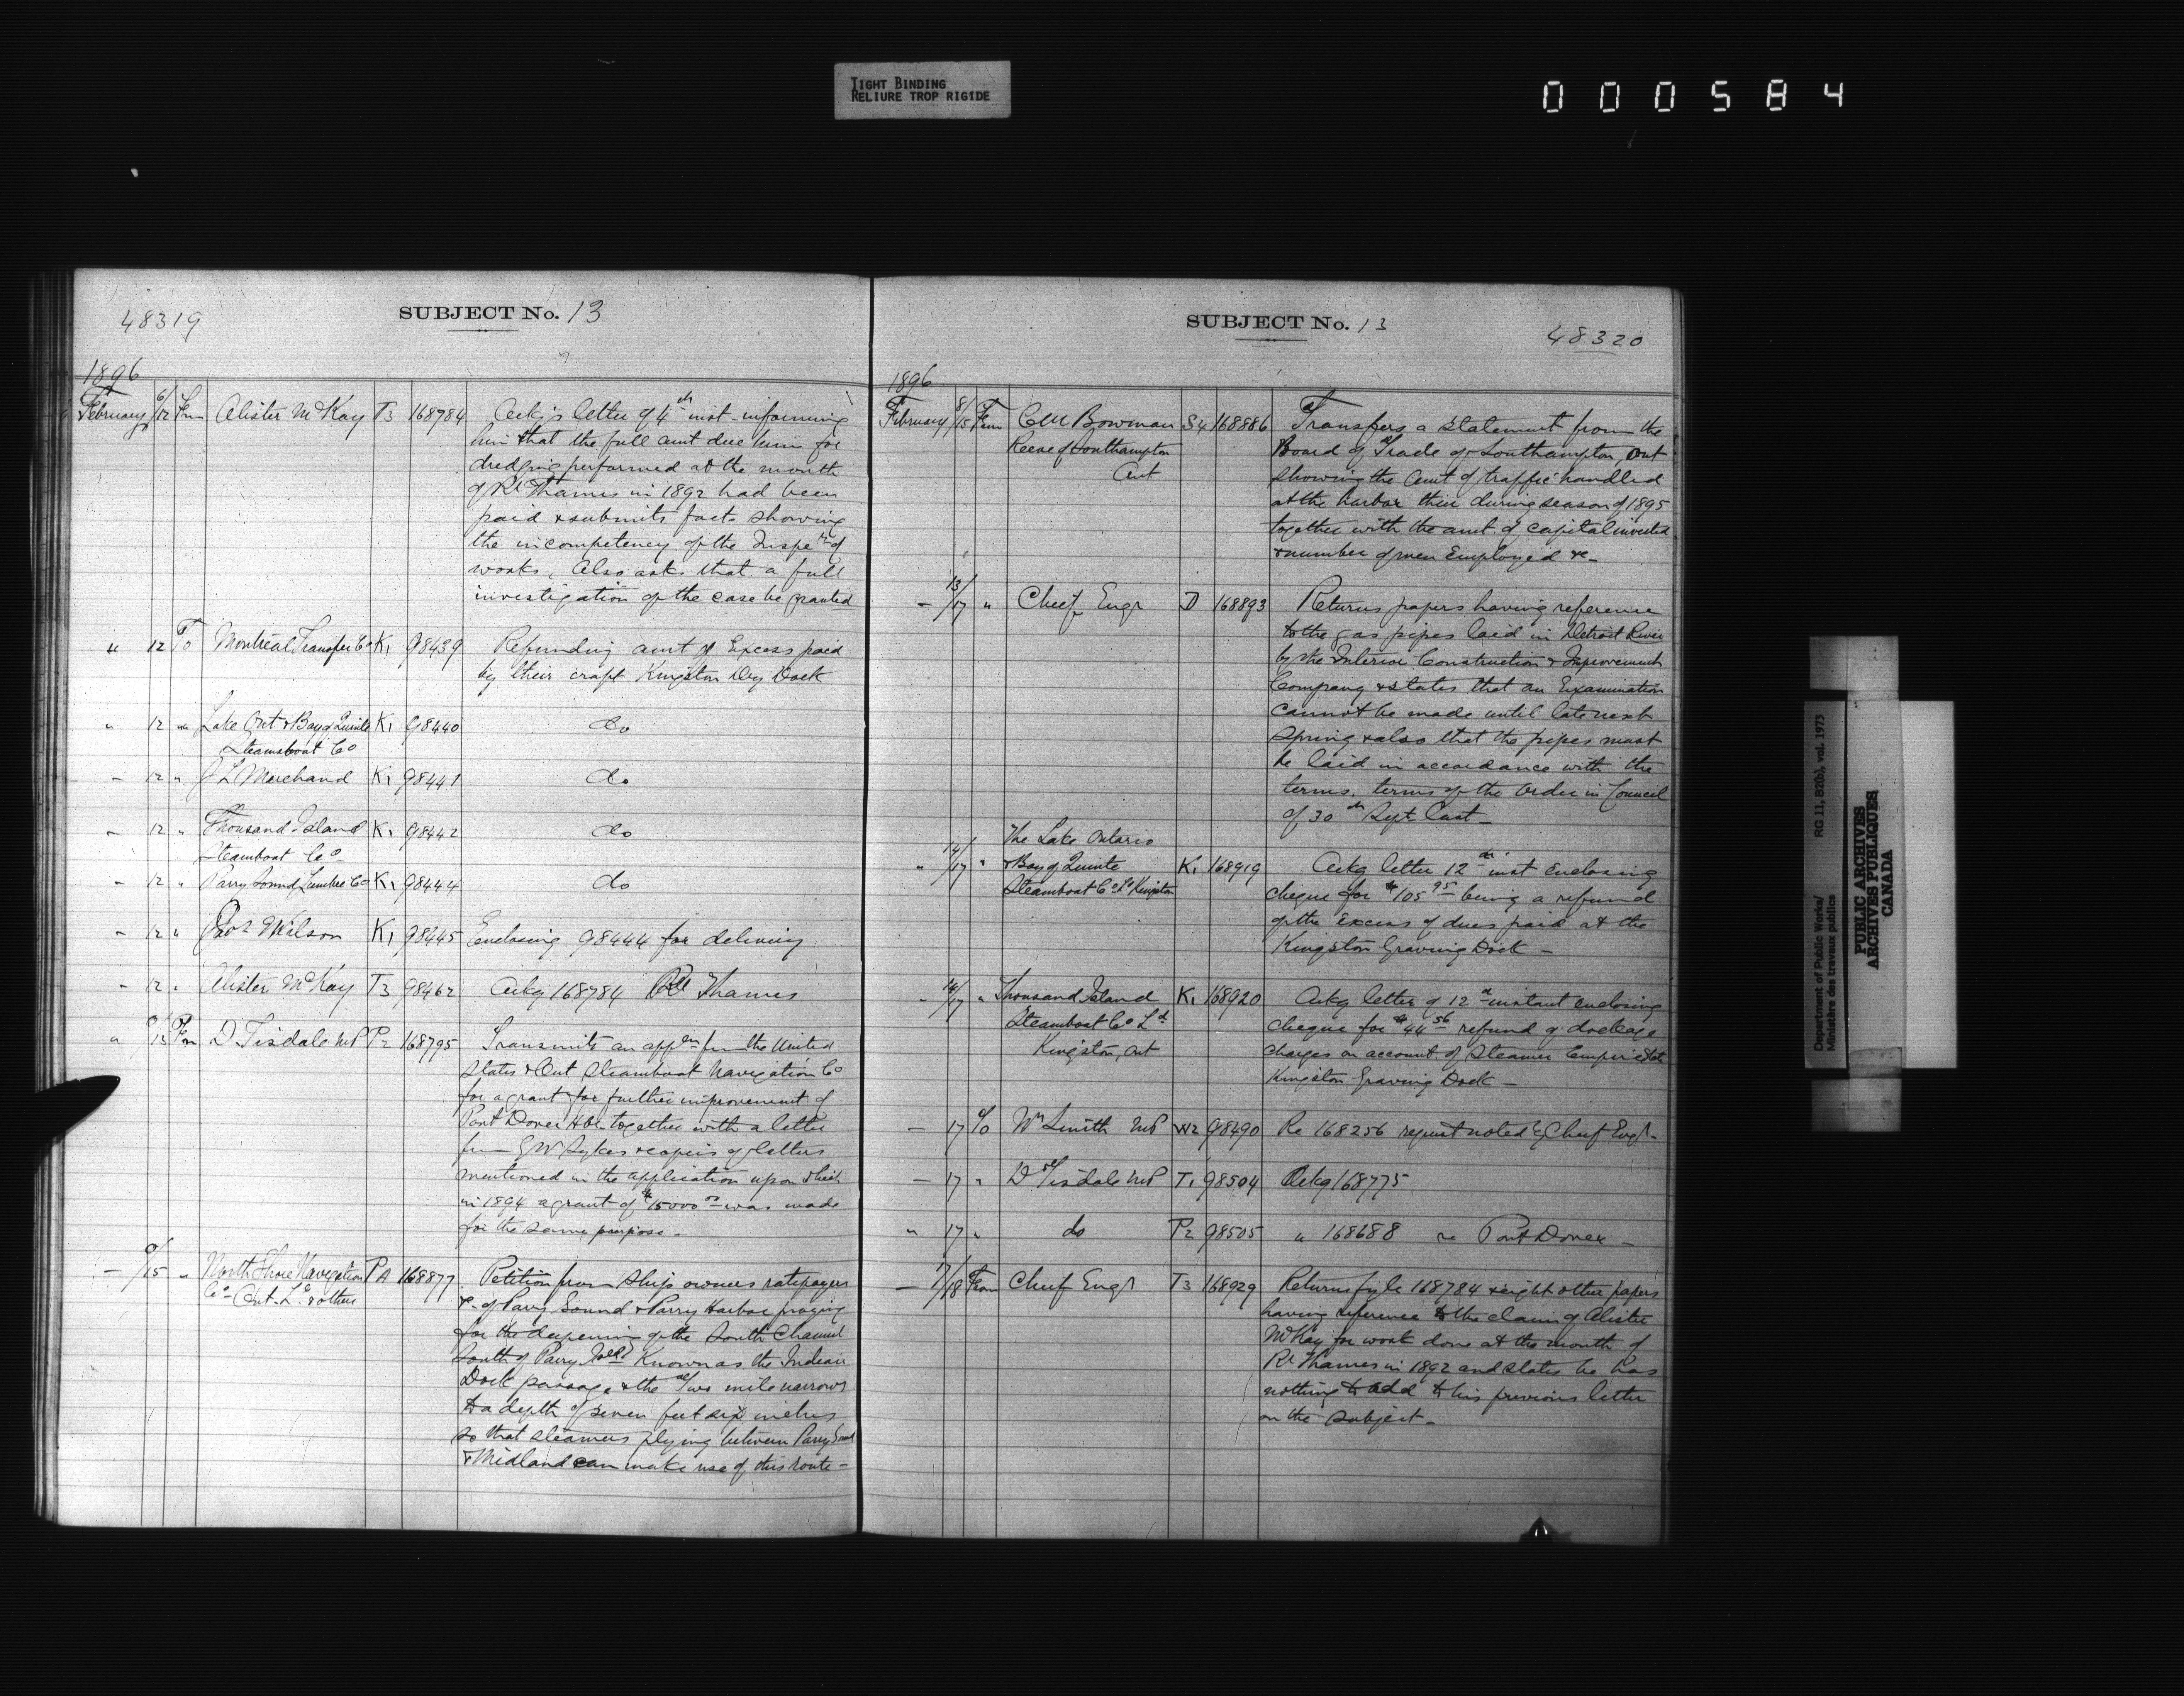 TIGHT BINDING
RELIURE TROP RIGIDE
000584
48319
SUBJECT No. 13
1896
February 6/12 Fm Alister McKay T3 168784 Ackg's letter of 4th inst informing
him that the full amt due him for
dredging performed at the mouth
of Rr Thames in 1892 had been
paid & submits facts showing
the incompetency of the Inspr of
works. Also asks that a full
investigation of the case be granted
" 12 To Montreal Transfer Co K1 98439 Refunding amt of Excess paid
by their craft Kingston Dry Dock
" 12 " Lake Ont & Bay of Quinte K1 98440 do
Steamboat Co
- 12 " J L Marchand K1 98441 do
- 12 " Thousand Island K1 98442 do
Steamboat Co
- 12 " Parry Sound Lumber Co K1 98444 do
- 12 " Wilson K1 98445 Enclosing 98444 for delivery
- 12 " Alister McKay T3 98462 Ackg 168784 Re Thames
" /13 Fm D Tisdale MP P2 168795 Transmits an appn fm the United
States & Ont Steamboat Navigation Co
for a grant for further improvement of
Port Dover Hbr together with a letter
fm Sykes & copies of letters
mentioned in the application upon which
in 1894 a grant of $15000 00 was made
for the same purpose -
- /15 " North Shore Navigation PA 168877 Petition from Ship owners ratepayers
Co - Ont. Ld & others
&c of Parry Sound & Parry Harbor praying
for the deepening of the South Channel
South of Parry Isld Known as the Indian
Dock passage & the Two mile narrows
to a depth of seven feet six inches
so that steamers plying between Parry Sound
& Midland can make use of this route -
SUBJECT No. 13
48320
1896
February 8/15 From C M Bowman S4 168886 Transfers a statement from the
Reeve of Southampton
Ont
Board of Trade of Southampton, Ont
showing the amt of traffic handled
at the harbor their during season of 1895
together with the amt. of capital invested
& number of men Employed &c -
- 13/17 " Chief Engr D 168893 Returns papers having reference
to the gas pipes laid in Detroit River
by the Interior Construction & Improvement
Company & states that an Examination
cannot be made until late next
Spring & also that the pipes must
be laid in accordance with the
terms. terms of the Order in Council
of 30th Sept last -
The Lake Ontario
" 14/17 " & Bay of Quinte K1 168919 Ackg letter 12th inst enclosing
Steamboat Co Ld Kingston
cheque for $105 95 being a refund
of the Excess of dues paid at the
Kingston Graving Dock -
- 14/17 " Thousand Island K1 168920 Ackg letter of 12th instant enclosing
Steamboat Co Ld
Kingston, Ont
cheque for $44 56 refund of dockage
charges on account of Steamer Empire State
Kingston Graving Dock -
- 17 To Wm Smith MP W2 98490 Re 168256 request noted by Chief Engr -
- 17 " D Tisdale MP T1 98504 Ackg 168775
" 17 " do P2 98505 " 168688 re Port Dover -
- 7/18 From Chief Engr T3 168929 Returns fyle 168784 & eight other papers
having reference to the claim of Alister
McKay for work done at the mouth of
Rr Thames in 1892 and states he has
nothing to add to his previous letter
on the subject -
Department of Public Works/ RG 11, B2(b), vol. 1973
Ministère des travaux publics
PUBLIC ARCHIVES
ARCHIVES PUBLIQUES
CANADA